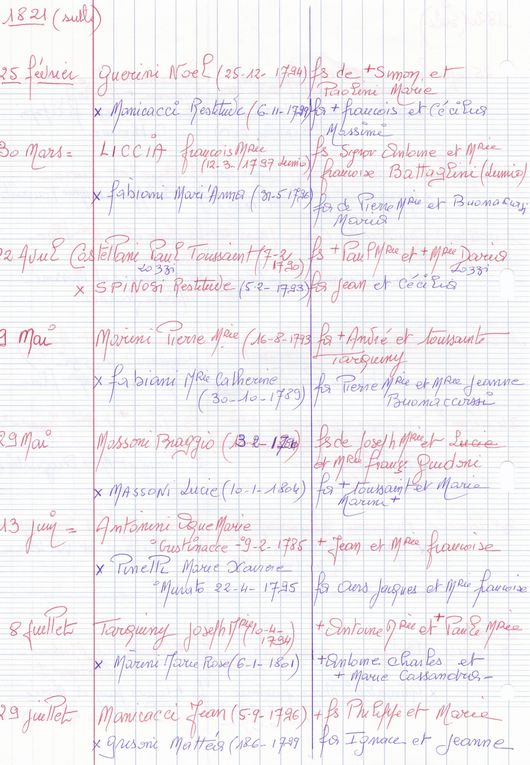 1821 (suite)
25 février Guerini Noël (25-12-1794) fs de + Simon et
Paolini Marie
x Manicacci Restitude (6-11-1799) fa + françois et Cécilia
Massimi
30 Mars = LICCIA françois Mrie fs Signor Antoine et Mrie
(12-3-1797 Lumio) françoise Battaglini (Lumio)
x fabiani Mari'Anna (31-5-1796) fa de Pierre Mrie et Buonaccorsi
Maria
22 Avril Castellani Paul Toussaint (7-2- fs + Paul Mrie et + Mrie Daria
Lozzi 1790) Lozzi
x SPINOSI Restitude (5-2-1793) fa Jean et Cécilia
9 Mai Marini Pierre Mrie (16-8-1793 fs + André et Toussainte
Tarquiny
x fabiani Mrie Catherine fa Pierre Mrie et Mrie Jeanne
(30-10-1789) Buonaccorsi
29 Mai Massoni Braggio fs de Joseph Mrie et Lucie
et Mrie franç Guidoni
x MASSONI Lucie (10-1-1804) fa + Toussaint et Marie
Marini +
13 juin = Antonini Marie
9-2-1785 + Jean et Mrie françoise
x Pinelli Marie Xaviere
°Murato 22-4-1795 fa Ours Jacques et Mrie françoise
8 juillet Tarquiny Joseph Mrie (10-4- + Antoine Mrie et + Paule Mrie
1794)
x Marini Marie Rose (6-1-1801) + Antoine Charles et
+ Marie Cassandra -
29 juillet Manicacci Jean (5-9-1796) + fs Philippe et Marie
x Grisoni Mattéa fa Ignace et Jeanne